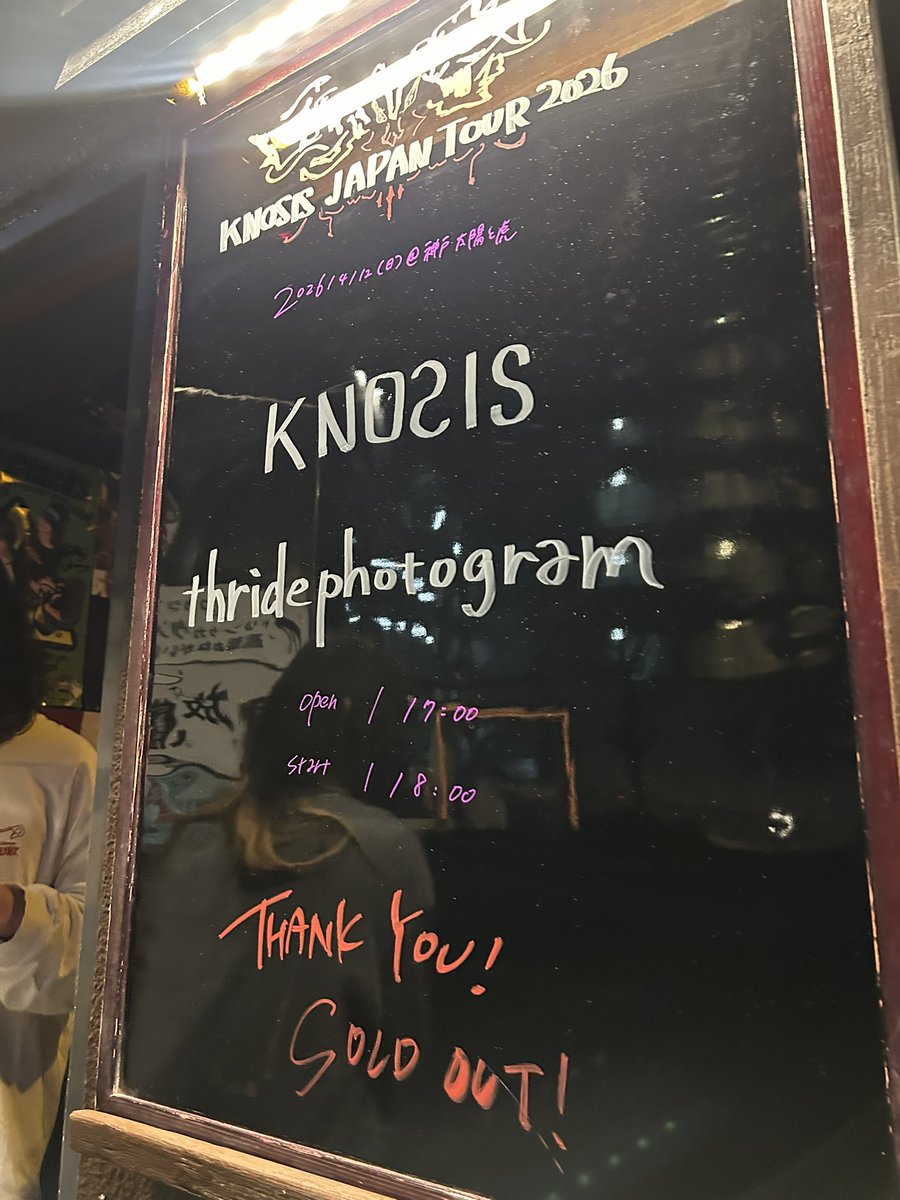 KNOSIS JAPAN TOUR 2026
2026/4/12(日)@神戸 太陽と虎
KNOSIS
thridephotogram
open / 17:00
start / 18:00
THANK YOU!
SOLD OUT!